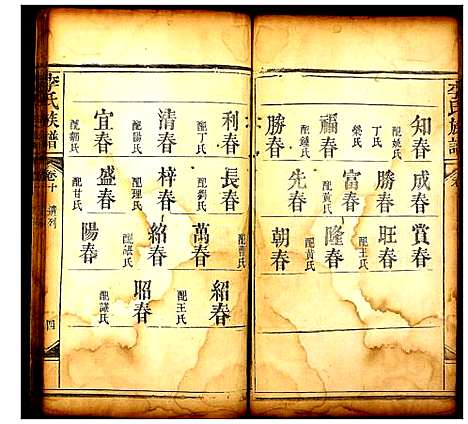 李氏族譜
知春
配姚氏
福春
配鍾氏
勝春
丁氏
成春
勝春
富春
配黃氏
先春
賞春
旺春
配王氏
隆春
配黃氏
朝春
利春
配丁氏
清春
配陽氏
宜春
長春
配劉氏
梓春
配理氏
盛春
配甘氏
萬春
紹春
陽春
紹春
配王氏
昭春
配譚氏
李氏族譜
卷十
四